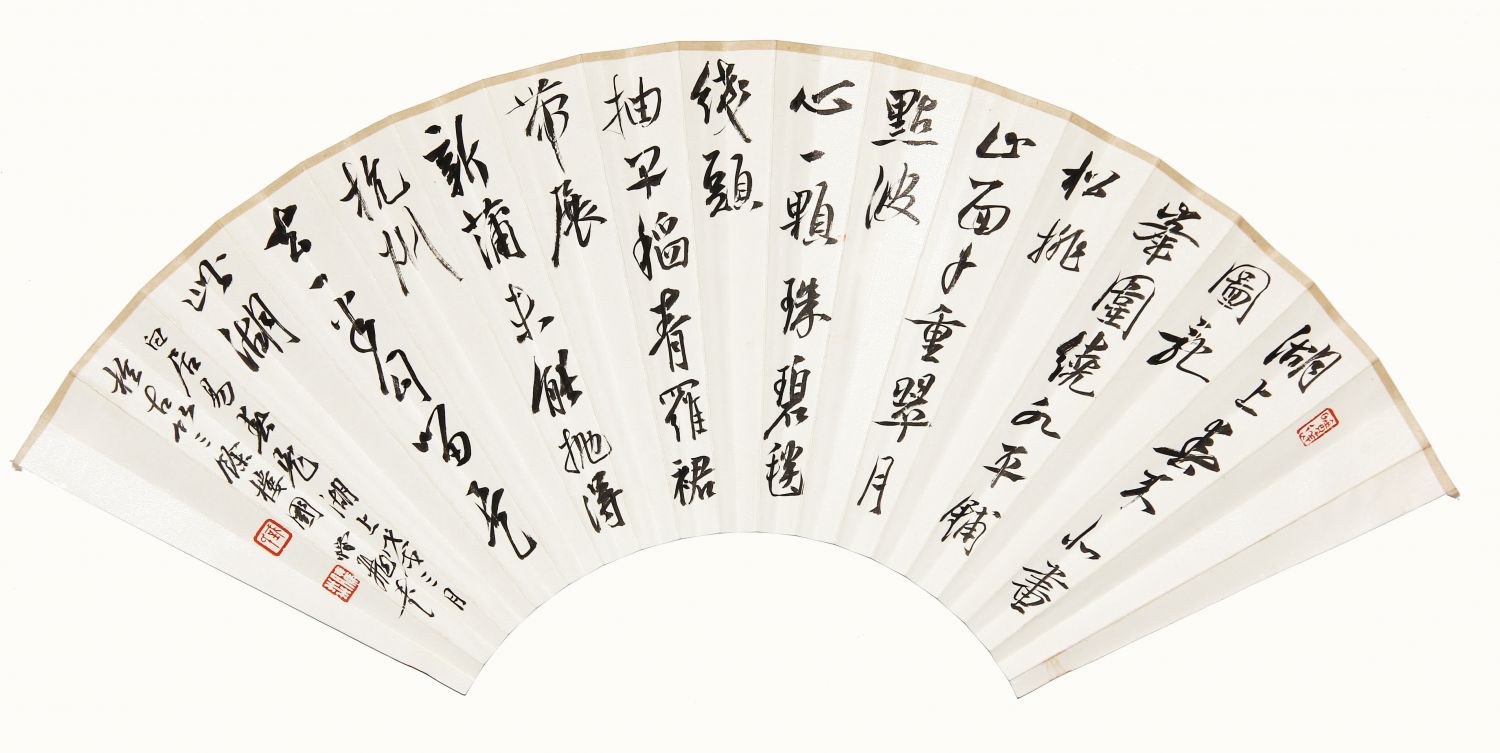 湖上春来似畫
圖乱
峯圍繞水平鋪
松排
山面千重翠月
點波
心一顆珠碧毯
綫頭
抽早稻青羅裙
帶展
新蒲未能拋得
杭州
去一半勾留是
此湖
白居易春題湖上戊寅三月
三餘樓